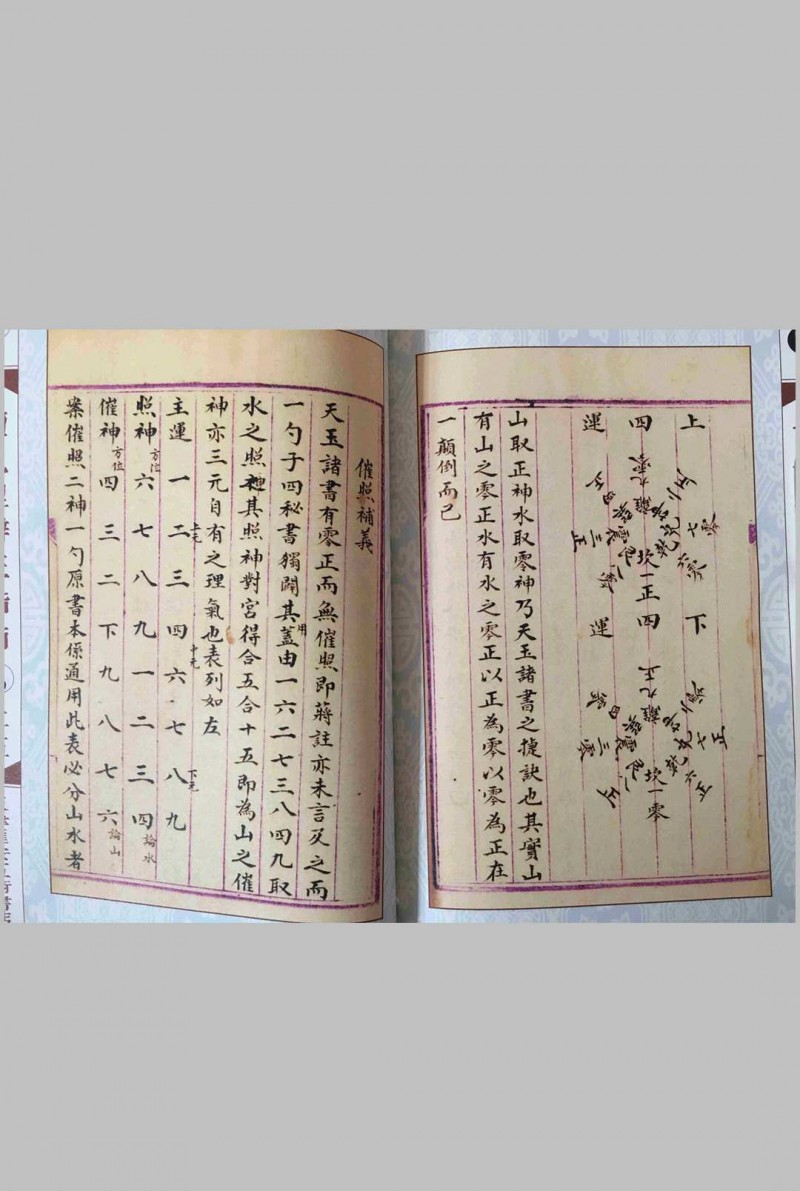 上
四
運
離九零
兌七零
震三正
坎一正
下
四
運
離九正
兌七正
震三零
坎一零
山取正神水取零神乃天玉諸書之捷訣也其實山
有山之零正水有水之零正以正為零以零為正在
一顛倒而已
催照補義
天玉諸書有零正而無催照即蔣註亦未言及之而
一勺子四秘書獨闢其用蓋由一六二七三八四九取
水之照神其照神對宮得合五合十五即為山之催
神亦三元自有之理氣也表列如左
主運 一 二 上元 三 四 中元 六 七 八 下元 九
照神 方位 六 七 八 九 一 二 三 四 論水
催神 方位 四 三 二 下 九 八 七 六 論山
案催照二神一勺原書本係通用此表必分山水者